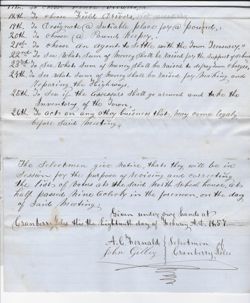 18th To choose Field Drivers
19th To designate a suitable place for a pound,
20th To choose a Pound Keeper,
21st To choose an agent to settle with the Town Treasurer,
22nd To see what sum of money shall be raised for the support of
23rd To see what sum of money shall be raised to defray town charges,
24th To see what sum of money shall be raised for making and
repairing the Highways,
25th To see if the assessors shall go around and take the
Inventory of the Town,
26th To act on any other business that may come legally
before said meeting,
The Selectmen give notice, that they will be in
session for the purpose of revising and correcting
the list of voters at the said North School house, at
half past nine o'clock in the forenoon, on the day
of said Meeting,
Given under our hands at
Cranberry Isles this the Eighteenth day of February A.D. 1857.
A. C. Fernald } Selectmen of
John Gilley } Cranberry Isles